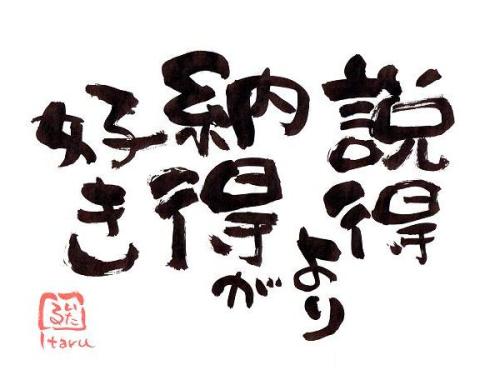 説得より
納得が
好き
いたる
Itaru